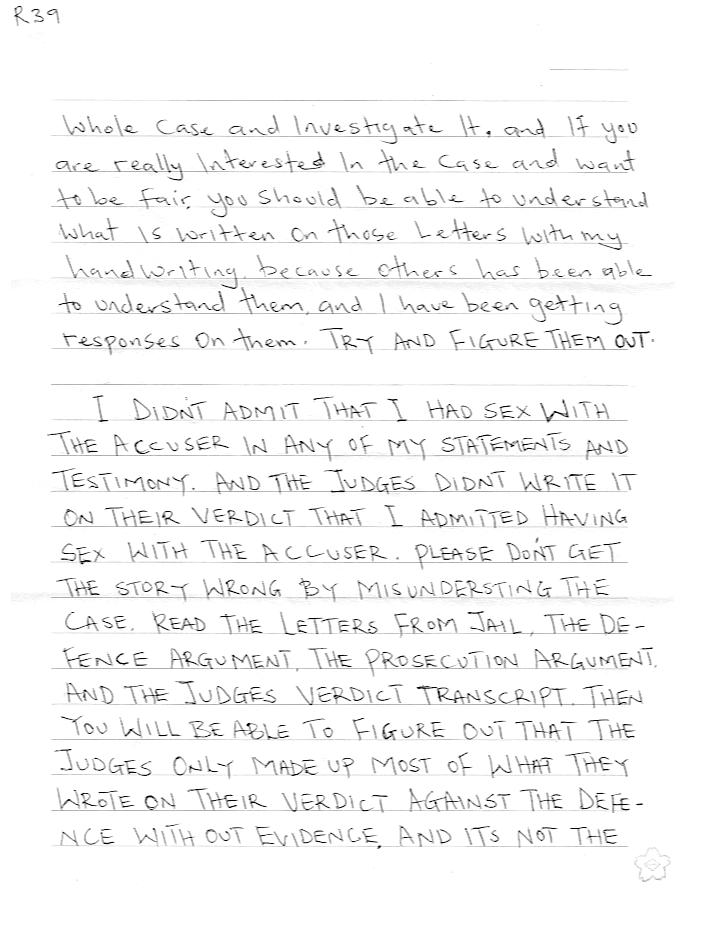 R39
Whole Case and Investigate It. and If you
are really Interested In the Case and want
to be fair, you Should be able to understand
What Is Written On those Letters With my
handwriting. because others has been able
to understand them, and I have been getting
responses On them. TRY AND FIGURE THEM OUT.
I DIDN'T ADMIT THAT I HAD SEX WITH
THE ACCUSER IN ANY OF MY STATEMENTS AND
TESTIMONY. AND THE JUDGES DIDNT WRITE IT
ON THEIR VERDICT THAT I ADMITTED HAVING
SEX WITH THE ACCUSER. PLEASE DON'T GET
THE STORY WRONG BY MISUNDERSTING THE
CASE. READ THE LETTERS FROM JAIL, THE DE-
FENCE ARGUMENT, THE PROSECUTION ARGUMENT,
AND THE JUDGES VERDICT TRANSCRIPT. THEN
YOU WILL BE ABLE TO FIGURE OUT THAT THE
JUDGES ONLY MADE UP MOST OF WHAT THEY
WROTE ON THEIR VERDICT AGAINST THE DEFE-
NCE WITH OUT EVIDENCE, AND ITS NOT THE